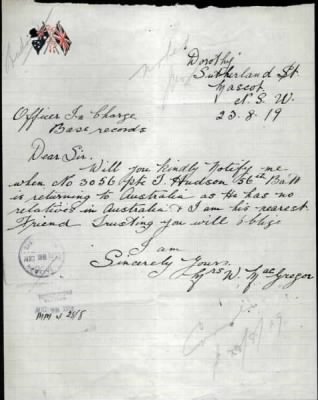 noted
"Dorothy"
Sutherland St.
Mascot
N. S. W.
23-8-19
Officer In Charge
Base records
Dear Sir.
Will you kindly Notify me
when No 3056 Pte T. Hudson 56th Batt
is returning to Australia as He has no
relatives in Australia & I am his nearest
Friend Trusting you will oblige
I am
Sincerely Yours.
Mrs W. MacGregor
28/8/19